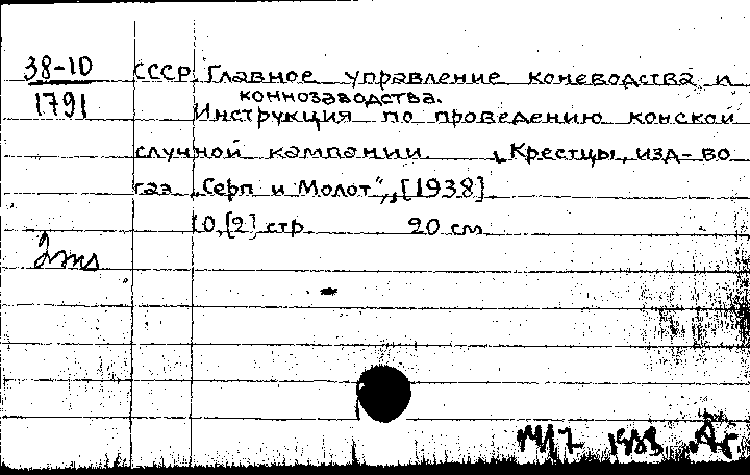 38-10
1791
СССР. Главное управление коневодства и
коннозаводства.
Инструкция по проведению конской
случной кампании. Крестцы, изд-во
газ. „Серп и Молот", [1938].
10,[2] стр. 20 см.
2 экз
1938